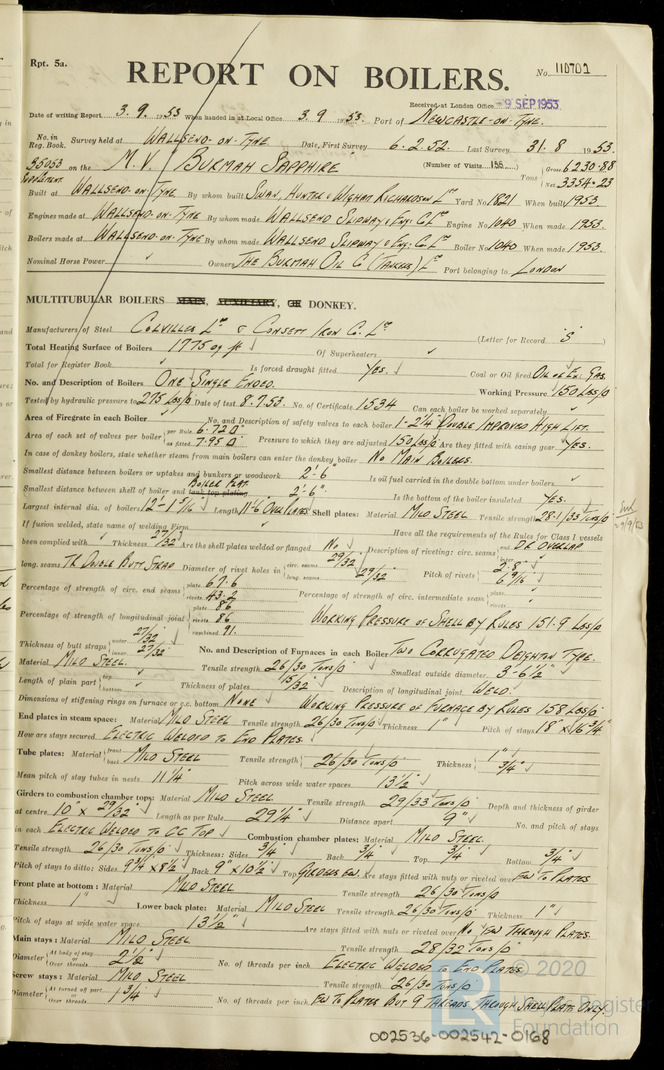 Rpt. 5a.
REPORT ON BOILERS.
No. 110701
Received at London Office -9 SEP 1953
Date of writing Report 3. 9. 1953 When handed in at Local Office 3. 9. 1953. Port of NEWCASTLE-ON-TYNE.
No. in Reg. Book. Survey held at WALLSEND-ON-TYNE Date, First Survey 6.2.52. Last Survey 31.8 1953.
35053 on the M.V. "BURMAH SAPPHIRE" (Number of Visits 155) Tons Gross 6230.88 Net 3354.23
SUPPLEMENT.
Built at WALLSEND-ON-TYNE By whom built SWAN, HUNTER & WIGHAM RICHARDSON Ld Yard No 1821 When built 1953.
Engines made at WALLSEND-ON-TYNE By whom made WALLSEND SLIPWAY & ENG: Co Ld Engine No 1040 When made 1953.
Boilers made at WALLSEND-ON-TYNE By whom made WALLSEND SLIPWAY & ENG: Co Ld Boiler No 1040 When made 1953.
Nominal Horse Power ✓ Owners THE BURMAH OIL Co (TANKERS) Ld Port belonging to LONDON
MULTITUBULAR BOILERS MAIN, AUXILIARY, OR DONKEY.
Manufacturers of Steel COLVILLES Ld & CONSETT IRON Co. Ld (Letter for Record S )
Total Heating Surface of Boilers 1775 sq ft Of Superheaters ✓
Total for Register Book ✓ Is forced draught fitted YES. ✓ Coal or Oil fired OIL OR EX: GAS.
No. and Description of Boilers ONE SINGLE ENDED. Working Pressure 150 LBS/□
Tested by hydraulic pressure to 275 LBS/□ Date of test 8.7.53. No. of Certificate 1534 Can each boiler be worked separately ✓
Area of Firegrate in each Boiler ✓ No. and Description of safety valves to each boiler 1-2¼" DOUBLE IMPROVED HIGH LIFT.
Area of each set of valves per boiler per Rule 6.72 □ as fitted 7.95 □ Pressure to which they are adjusted 150 LBS/□ Are they fitted with easing gear YES.
In case of donkey boilers, state whether steam from main boilers can enter the donkey boiler NO MAIN BOILERS.
Smallest distance between boilers or uptakes and bunkers or woodwork 2'-6" Is oil fuel carried in the double bottom under boilers ✓
Smallest distance between shell of boiler and tank top plating BOILER FLAT. 2'-6" Is the bottom of the boiler insulated YES.
Largest internal dia. of boilers 12'-1 7/16" Length 11'-6 OVER PLATES Shell plates: Material MILD STEEL Tensile strength 28.1/33 TONS/□
If fusion welded, state name of welding Firm ✓ Have all the requirements of the Rules for Class I vessels
been complied with ✓ Thickness 27/32" Are the shell plates welded or flanged NO ✓ Description of riveting: circ. seams end DR OVERLAP inter. ✓
long. seams TR DOUBLE BUTT STRAP Diameter of rivet holes in circ. seams 29/32" long. seams 29/32" Pitch of rivets 2.8" 6 9/16"
Percentage of strength of circ. end seams plate 67.6 rivets 43.2 Percentage of strength of circ. intermediate seams plate ✓ rivets ✓
Percentage of strength of longitudinal joint plate 86 rivets 86 combined 91. WORKING PRESSURE OF SHELL BY RULES 151.9 LBS/□
Thickness of butt straps outer 27/32" inner 27/32" No. and Description of Furnaces in each Boiler TWO CORRUGATED DEIGHTON TYPE.
Material MILD STEEL. Tensile strength 26/30 TONS/□ Smallest outside diameter 3'-6½"
Length of plain part top ✓ bottom ✓ Thickness of plates 15/32" Description of longitudinal joint WELD.
Dimensions of stiffening rings on furnace or c.c. bottom NONE WORKING PRESSURE OF FURNACE BY RULES 158 LBS/□
End plates in steam space: Material MILD STEEL Tensile strength 26/30 TONS/□ Thickness 1" Pitch of stays 18" × 16¾"
How are stays secured ELECTRIC WELDED TO END PLATES.
Tube plates: Material front back MILD STEEL Tensile strength 26/30 TONS/□ Thickness 1" ¾"
Mean pitch of stay tubes in nests 11¼" Pitch across wide water spaces 13½"
Girders to combustion chamber tops: Material MILD STEEL Tensile strength 29/33 TONS/□ Depth and thickness of girder
at centre 10" × 29/32" Length as per Rule 29¼" Distance apart 9" No. and pitch of stays
in each ELECTRIC WELDED TO CC TOP ✓ Combustion chamber plates: Material MILD STEEL.
Tensile strength 26/30 TONS/□ Thickness: Sides ¾" Back ¾" Top ¾" Bottom ¾"
Pitch of stays to ditto: Sides 9¾" × 8½" Back 9" × 10½" Top GIRDERS EW. Are stays fitted with nuts or riveted over EW TO PLATES
Front plate at bottom: Material MILD STEEL Tensile strength 26/30 TONS/□
Thickness 1" Lower back plate: Material MILD STEEL Tensile strength 26/30 TONS/□ Thickness 1"
Pitch of stays at wide water space 13½" Are stays fitted with nuts or riveted over NO. EW THROUGH PLATES.
Main stays: Material MILD STEEL Tensile strength 28/32 TONS/□
Diameter At body of stay Over threads No. of threads per inch ELECTRIC WELDED TO END PLATES
Screw stays: Material MILD STEEL Tensile strength 26/30 TONS/□
Diameter At turned off part Over threads 1¾" No. of threads per inch EW TO PLATES BUT 9 THREADS THROUGH SHELL PLATE ONLY.
© 2020
LR
Register
Foundation
002536-002542-0168